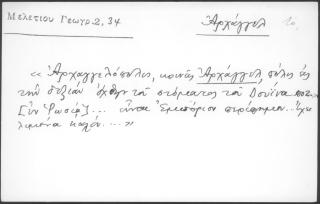 Μελετίου Γεωγρ. 2, 34
Ἀρχάγγελ
10.
« Ἀρχαγγελόπολις, κοινῶς Ἀρχάγγελ πόλις εἰς
τὴν δεξιὰν ὄχθην τοῦ στόματος τοῦ Δουΐνα ποτ.
[ἐν Ῥωσίᾳ]... εἶναι Ἐμπόριον περίφημον... ἔχει
λιμένα καλόν....»